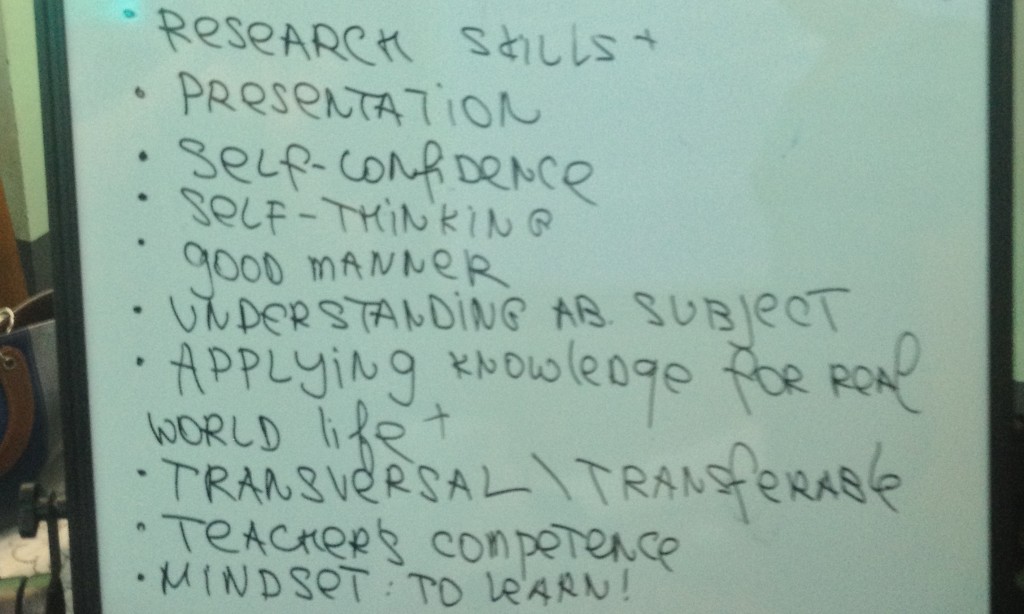 • RESEARCH SKILLS +
• PRESENTATION
• SELF-CONFIDENCE
• SELF-THINKING
• GOOD MANNER
• UNDERSTANDING AB. SUBJECT
• APPLYING KNOWLEDGE FOR REAL
WORLD LIFE +
• TRANSVERSAL \ TRANSFERABLE
• TEACHER'S COMPETENCE
• MINDSET: TO LEARN!